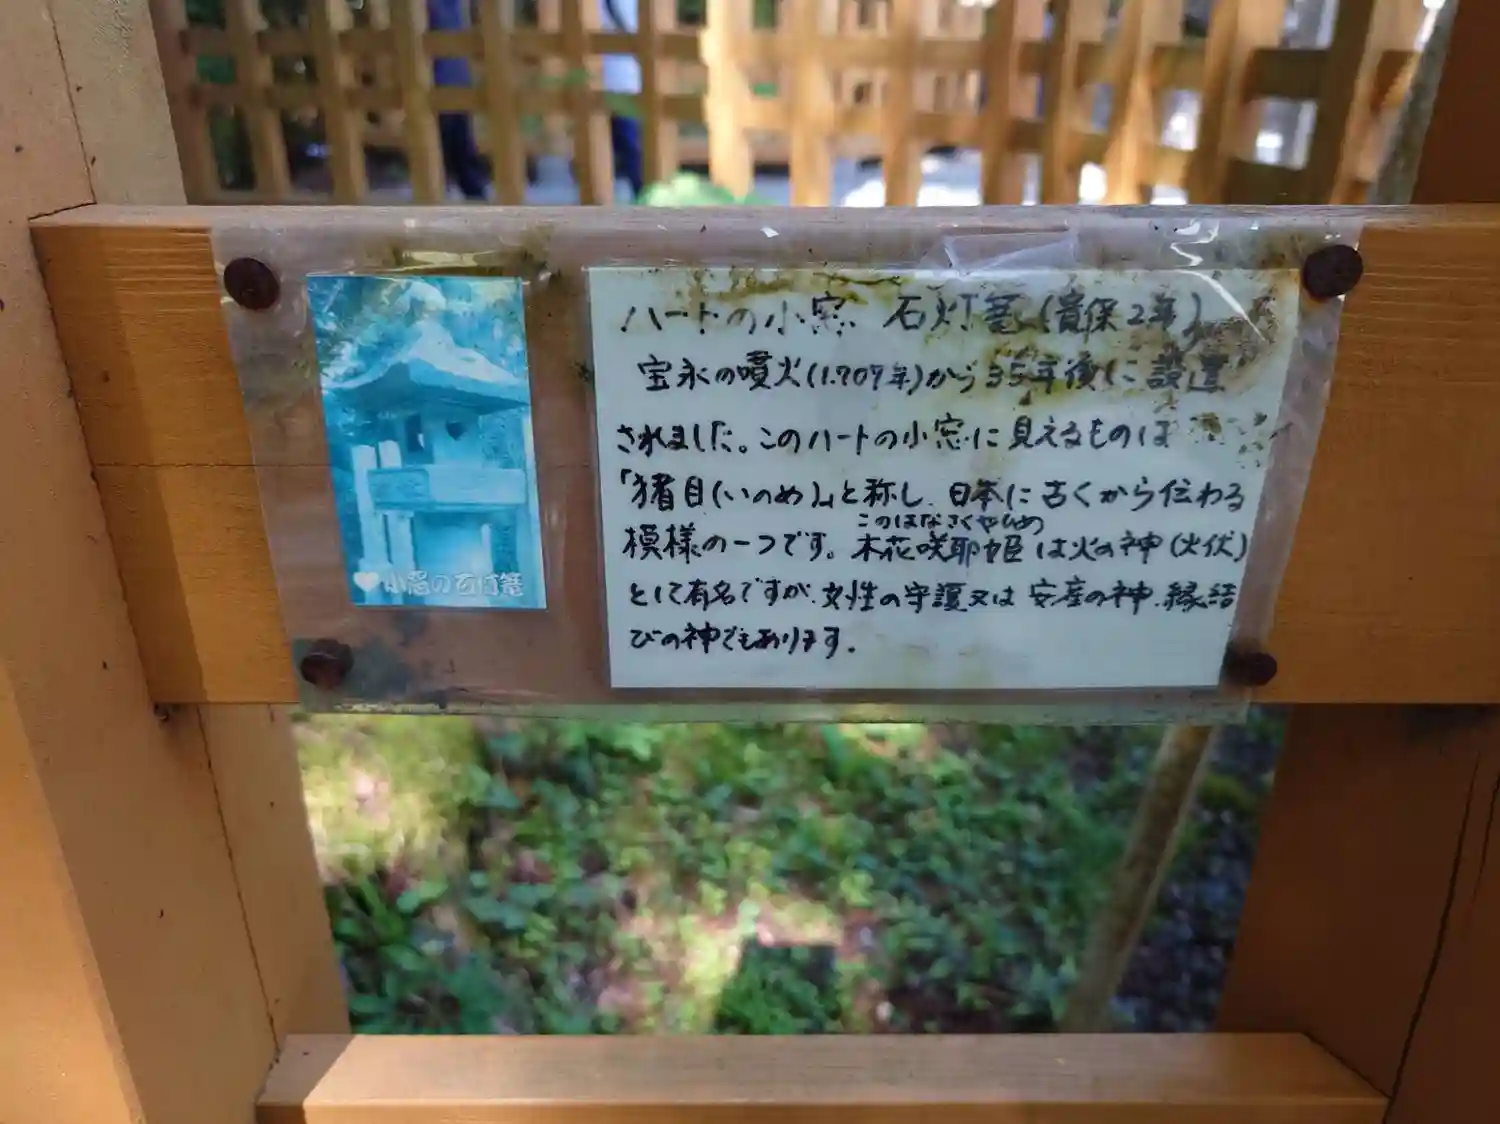 ハートの小窓 石灯篭(寛保2年)
宝永の噴火(1707年)から35年後に設置
されました。このハートの小窓に見えるものは
「猪目(いのめ)」と称し、日本に古くから伝わる
模様の一つです。木花咲耶姫は火の神(火伏)
このはなさくやひめ
として有名ですが、女性の守護又は安産の神、縁結
びの神でもあります。
♥小窓の石灯篭